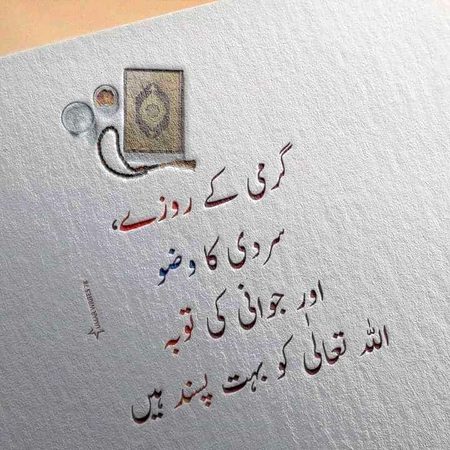 گرمی کے روزے،
سردی کا وضو
اور جوانی کی توبہ
اللہ تعالیٰ کو بہت پسند ہیں